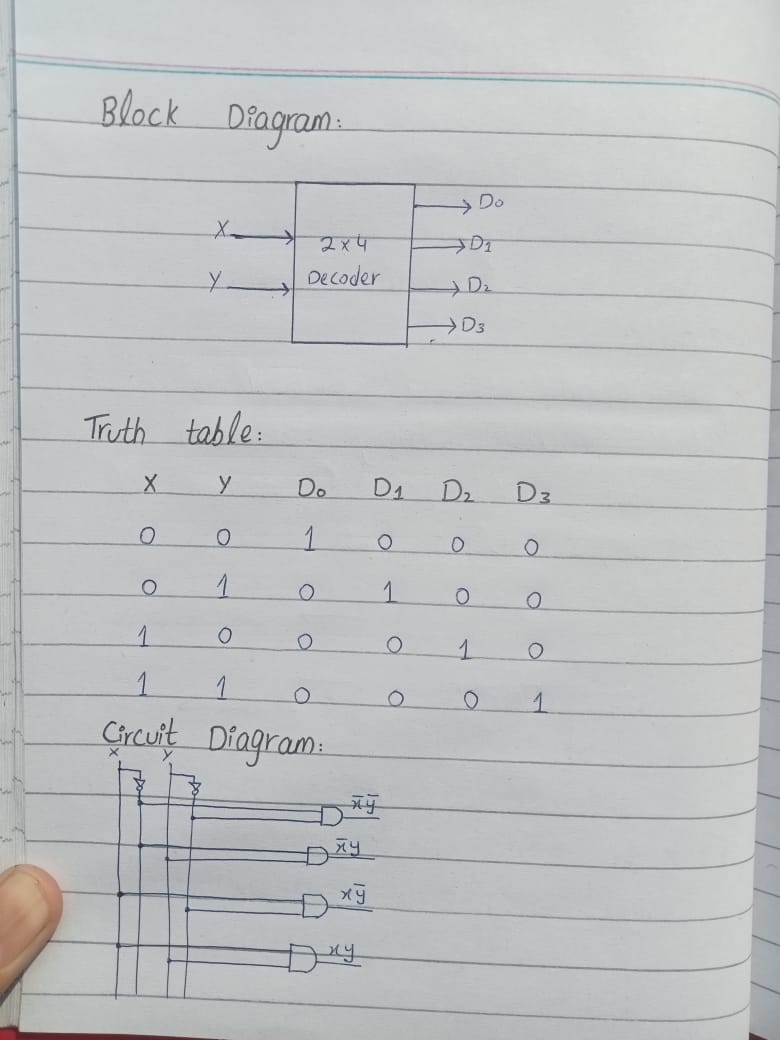 Block Diagram:
D₀
X
2 x 4
D1
Decoder
Y
D₂
D3
Truth table:
X Y D₀ D1 D₂ D3
0 0 1 0 0 0
0 1 0 1 0 0
1 0 0 0 1 0
1 1 0 0 0 1
Circuit Diagram:
x y
x̄ȳ
x̄y
xȳ
xy